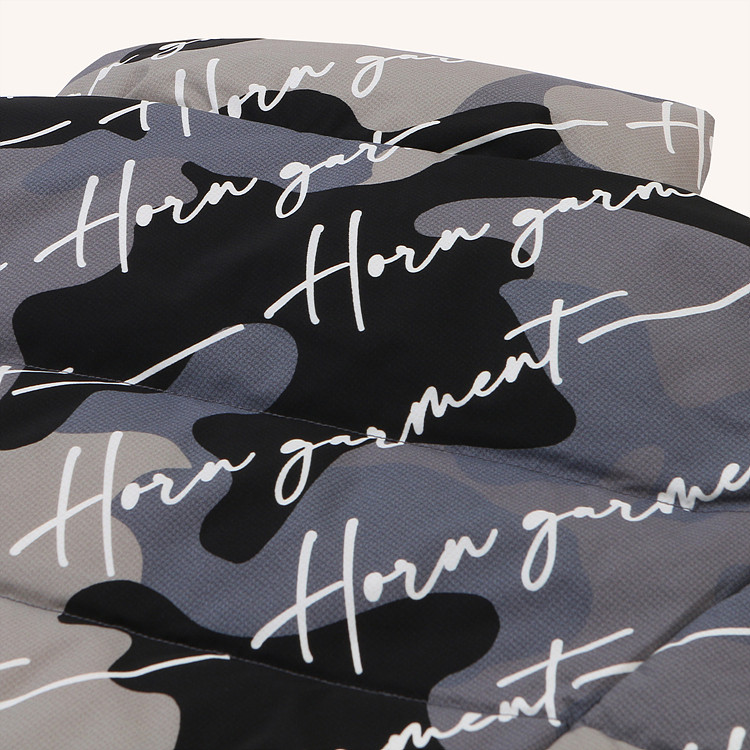 Horn gar
H
Horn gar
Horn garm
Horn garment
Horn garme
Horn
ment